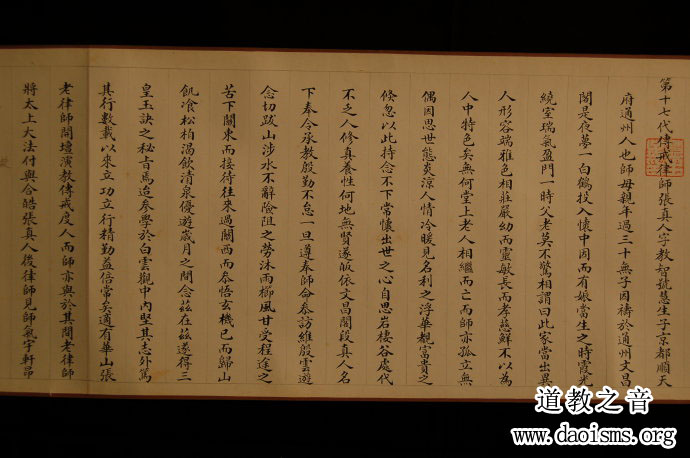 第十七代傳戒律師張真人字教智號慧生子京都順天
府通州人也師母親年過三十無子因禱於通州文昌
閣是夜夢一白鶴投入懷中因而有娠當生之時霞光
繞室瑞氣盈門一時父老莫不驚相謂曰此家當出異
人形容端雅色相莊嚴幼而靈敏長而孝慈鮮不以為
人中特色矣無何堂上老人相繼而亡而師亦孤立無
偶因思世態炎涼人情冷暖見名利之浮華覩富貴之
倏忽以此持念不下常懷出世之心自思岩棲谷處代
不乏人修真養性何地無賢遂皈依文昌閣段真人名
下奉令承教殷勤不怠一旦遵奉師命叅訪維殷雲遊
念切跋山涉水不辭險阻之勞沐雨櫛風甘受程途之
苦下關東而接待往來過關西而叅悟玄機已而歸山
飢飡松柏渴飲清泉優遊歲月之間念茲在茲遂得三
皇玉訣之秘旨焉迨叅學於白雲觀中內堅其志外篤
其行數載以來立功立行精勤益倍常矣適有華山張
老律師開壇演教傳戒度人而師亦與於其間老律師
將太上大法付與合皓張真人後律師見師氣宇軒昂
道教之音
www.daoisms.org